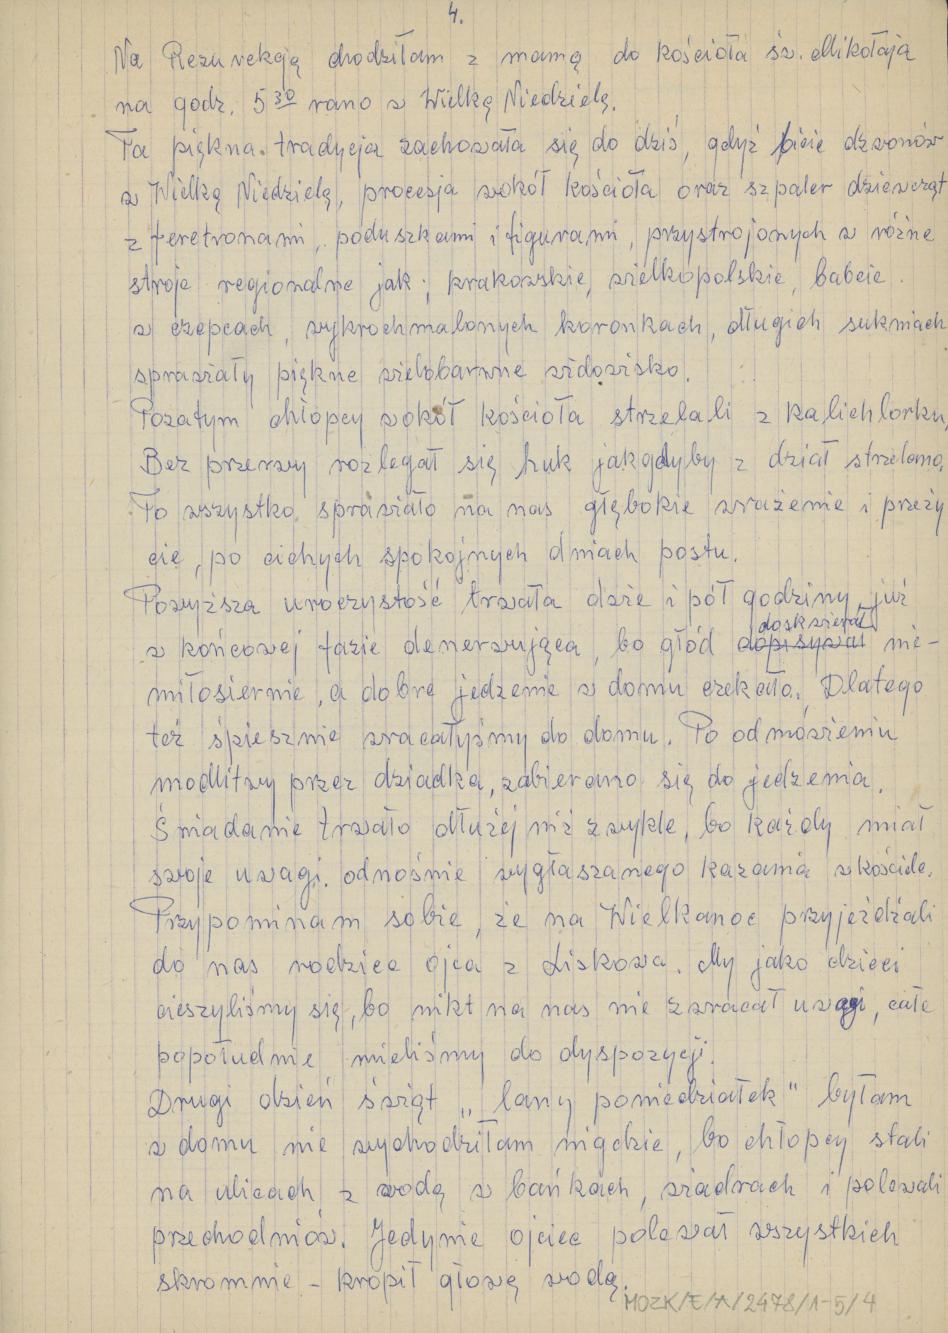 4.
Na Rezurekcją chodziłam z mamą do kościoła św. Mikołaja
na godz. 5³⁰ rano w Wielką Niedzielę.
Ta piękna tradycja zachowała się do dziś, gdyż bicie dzwonów
w Wielką Niedzielę, procesja wokół kościoła oraz szpaler dziewcząt
z feretronami, poduszkami i figurami, przystrojonych w różne
stroje regionalne jak; krakowskie, wielkopolskie, babcie
w czepcach, wykrochmalonych koronkach, długich sukniach
sprawiały piękne wielobarwne widowisko.
Pozatym chłopcy wokół kościoła strzelali z kalichlorku,
Bez przerwy rozlegał się huk jakgdyby z dział strzelano.
To wszystko sprawiało na nas głębokie wrażenie i przeży
cie, po cichych spokojnych dniach postu.
Powyższa uroczystość trwała dwie i pół godziny, już
doskwierał
w końcowej fazie denerwująca, bo głód dopisywał nie-
miłosiernie, a dobre jedzenie w domu czekało. Dlatego
też śpiesznie wracałyśmy do domu. Po odmówieniu
modlitwy przez dziadka, zabierano się do jedzenia.
Śniadanie trwało dłużej niż zwykle, bo każdy miał
swoje uwagi. odnośnie wygłaszanego kazania w kościele.
Przypominam sobie, że na Wielkanoc przyjeżdżali
do nas rodzice ojca z Liskowa. My jako dzieci
cieszyliśmy się, bo nikt na nas nie zwracał uwagi, całe
popołudnie mieliśmy do dyspozycji.
Drugi dzień świąt „lany poniedziałek" byłam
w domu nie wychodziłam nigdzie, bo chłopcy stali
na ulicach z wodą w bańkach, wiadrach i polewali
przechodniów. Jedynie ojciec polewał wszystkich
skromnie – kropił głowę wodą.
MOZK/E/A/2478/1-5/4